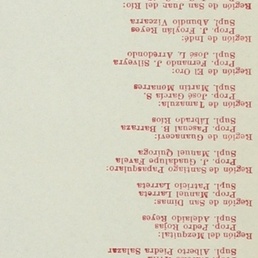 Supl. Alberto Piedra Salazar
Región del Mezquital:
Prop. Pedro Rojas
Supl. Adelaido Reyes
Región de San Dimas:
Prop. Manuel Larreta
Supl. Patricio Larreta
Región de Santiago Papasquiaro:
Prop. J. Guadalupe Favela
Supl. Manuel Quiroga
Región de Guanaceví:
Prop. Pascual B. Barraza
Supl. Librado Ríos
Región de Tamazula:
Prop. José García S.
Supl. Martín Monarres
Región de El Oro:
Prop. Fernando J. Silveyra
Supl. José L. Arredondo
Región de Indé:
Prop. J. Froylán Reyes
Supl. Abundio Vizcarra
Región de San Juan del Río: